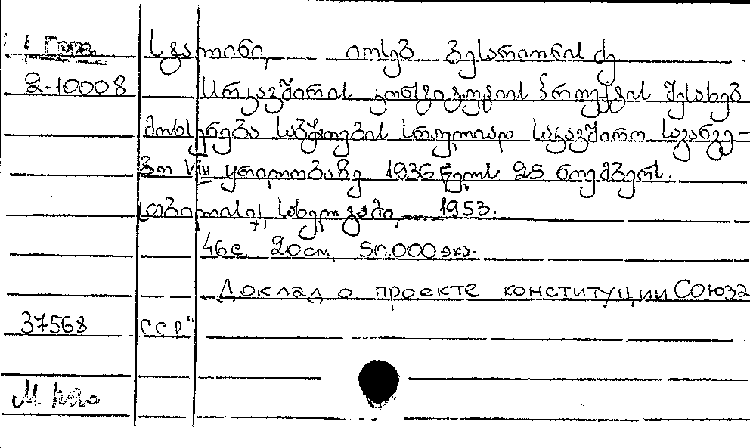 სტალინი, იოსებ ბესარიონის ძე
2-10008 სსრ კავშირის კონსტიტუციის პროექტის შესახებ
მოხსენება საბჭოების სრულიად საკავშირო საგანგე-
ბო VIII ყრილობაზე 1936 წლის 25 ნოემბერს.
თბილისი, სახელგამი, 1953.
46с 20см, 50.000 экз.
Доклад о проекте конституции Союза
37568 ССР"